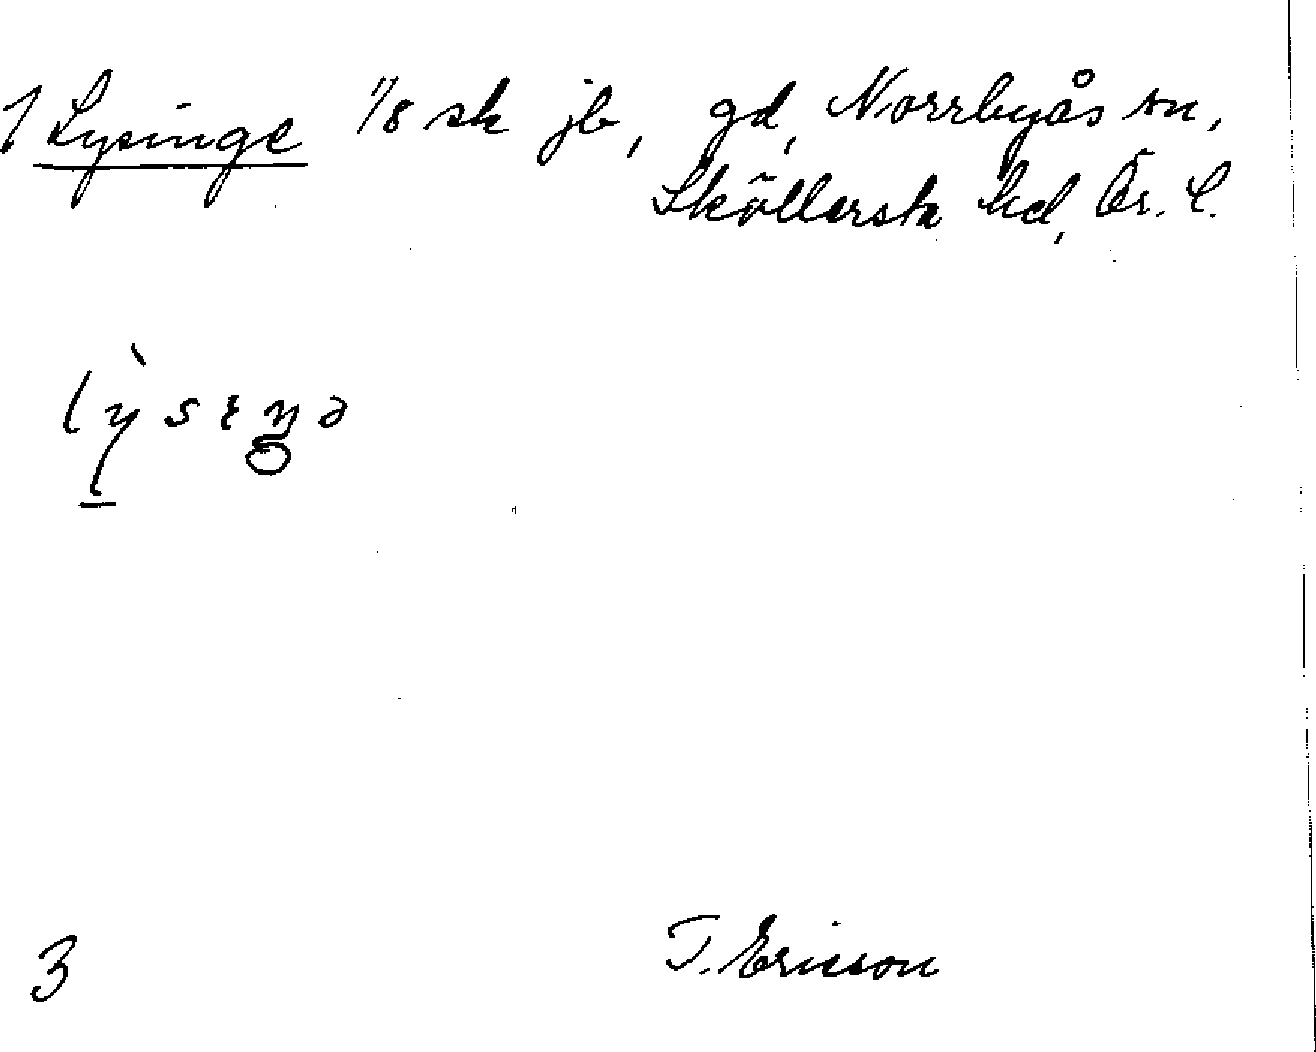 1 Lysinge 1/8 sk jb, gd, Norrbyås sn,
Sköllersta hd, Ör. l.
lỳsıŋə
3
T. Ericson